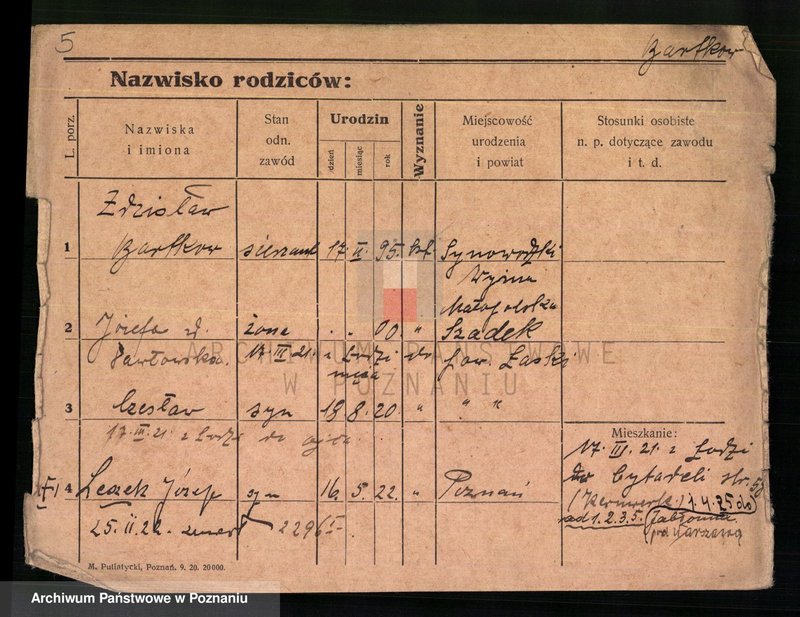 5
Bartkow
Nazwisko rodziców:
L. porz.
Nazwiska
i imiona
Stan
odn.
zawód
Urodzin
dzień
miesiąc
rok
Wyznanie
Miejscowość
urodzenia
i powiat
Stosunki osobiste
n. p. dotyczące zawodu
i t. d.
Zdzisław
1 Bartkow sierżant 17. II. 95. kt.
Wyżna
Małopolska
2 Józefa żona . . 00. " Szadek
Pawłowska. 17 III 21. z Łodzi do pow. Łaski
męża
3 Czesław syn 19 8. 20. " " "
17. III. 21. z Łodzi do ojca.
Mieszkanie:
17. III. 21. z Łodzi
Cytadeli str. 5
(Kernwerk) 1.4.25 do
1.2.3.5. Jabłonna
pod Warszawą
4 Leszek Józef syn 16. 5. 22. " Poznań
25. II. 22. zmarł 2296
M. Putiatycki, Poznań. 9. 20. 20000.
ARCHIWUM PAŃSTWOWE
W POZNANIU
Archiwum Państwowe w Poznaniu